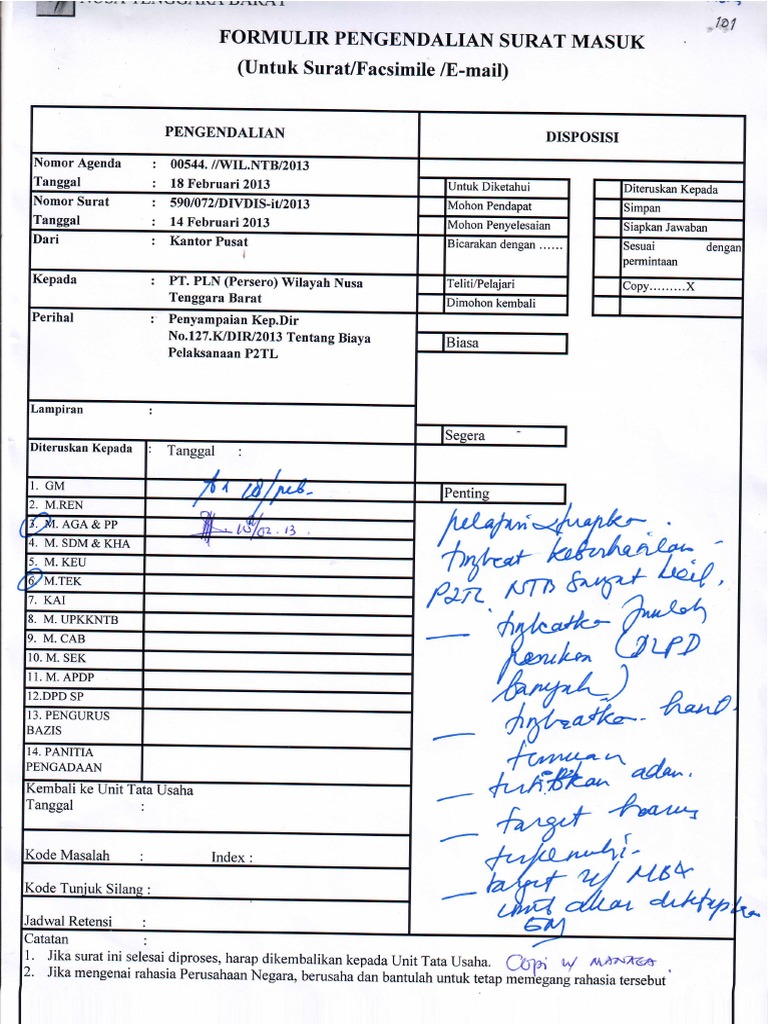 NUSA TENGGARA BARAT
101
FORMULIR PENGENDALIAN SURAT MASUK
(Untuk Surat/Facsimile /E-mail)
PENGENDALIAN
Nomor Agenda : 00544. //WIL.NTB/2013
Tanggal : 18 Februari 2013
Nomor Surat : 590/072/DIVDIS-it/2013
Tanggal : 14 Februari 2013
Dari : Kantor Pusat
Kepada : PT. PLN (Persero) Wilayah Nusa
Tenggara Barat
Perihal : Penyampaian Kep.Dir
No.127.K/DIR/2013 Tentang Biaya
Pelaksanaan P2TL
Lampiran :
Diteruskan Kepada : Tanggal :
1. GM
2. M.REN
3. M. AGA & PP
4. M. SDM & KHA
5. M. KEU
6. M.TEK
7. KAI
8. M. UPKKNTB
9. M. CAB
10. M. SEK
11. M. APDP
12.DPD SP
13. PENGURUS
BAZIS
14. PANITIA
PENGADAAN
Kembali ke Unit Tata Usaha
Tanggal :
Kode Masalah : Index :
Kode Tunjuk Silang :
Jadwal Retensi :
DISPOSISI
Untuk Diketahui
Mohon Pendapat
Mohon Penyelesaian
Bicarakan dengan ......
Teliti/Pelajari
Dimohon kembali
Diteruskan Kepada
Simpan
Siapkan Jawaban
Sesuai dengan
permintaan
Copy.........X
Biasa
Segera
Penting
tingkat keberhasilan
P2TL NTB Sangat kecil.
(DLPD
banyak)
temuan
target harus
terpenuhi.
target
unit akan ditetapkan
GM
Catatan :
1. Jika surat ini selesai diproses, harap dikembalikan kepada Unit Tata Usaha.
Copi w MANAGA
2. Jika mengenai rahasia Perusahaan Negara, berusaha dan bantulah untuk tetap memegang rahasia tersebut